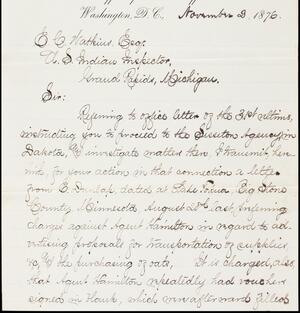 Washington, D.C., November 3, 1876.
E. C. Watkins, Esq.,
U. S. Indian Inspector,
Grand Rapids, Michigan.
Sir:
Referring to office letter of the 31st ultimo,
instructing you to proceed to the Sisseton Agency in
Dakota, & investigate matters there, I transmit here-
with, for your action in that connection a letter
from E. Dunlop, dated at Stone
County Minnesota August 28th last, preferring
charges against Agent Hamilton in regard to ad-
vertising proposals for transportation of supplies
&c, & the purchasing of oats. It is charged, also,
that Agent Hamilton repeatedly had vouchers
signed in blank, which were afterward filled